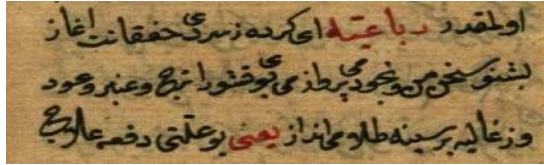 اولمقدر رباعیه ای کرده ز سردی خفقانت اغاز
بشنو سخن من و بخود می پرداز می بوی قشور اترج و عنبر و عود
وز غالیه بر سینه طلا می انداز یعنی بو علتی دفعه علاج